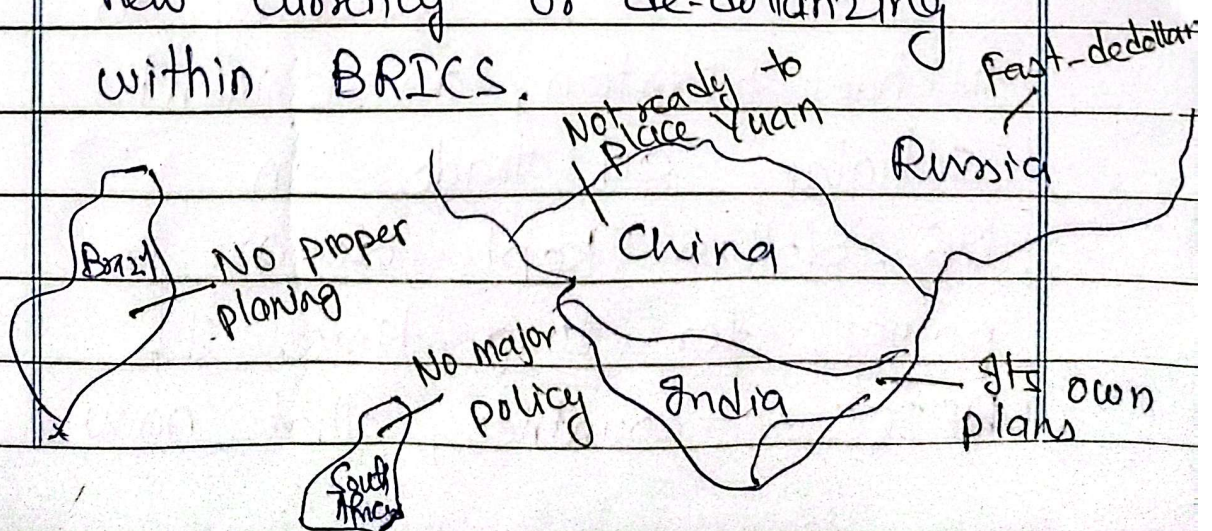 new currency or de-dollarizing
within BRICS.
Fast-dedollar
Not ready to
place Yuan
Russia
China
Brazil
No proper
planing
No major
policy
India
Its own
plans
South
Africa